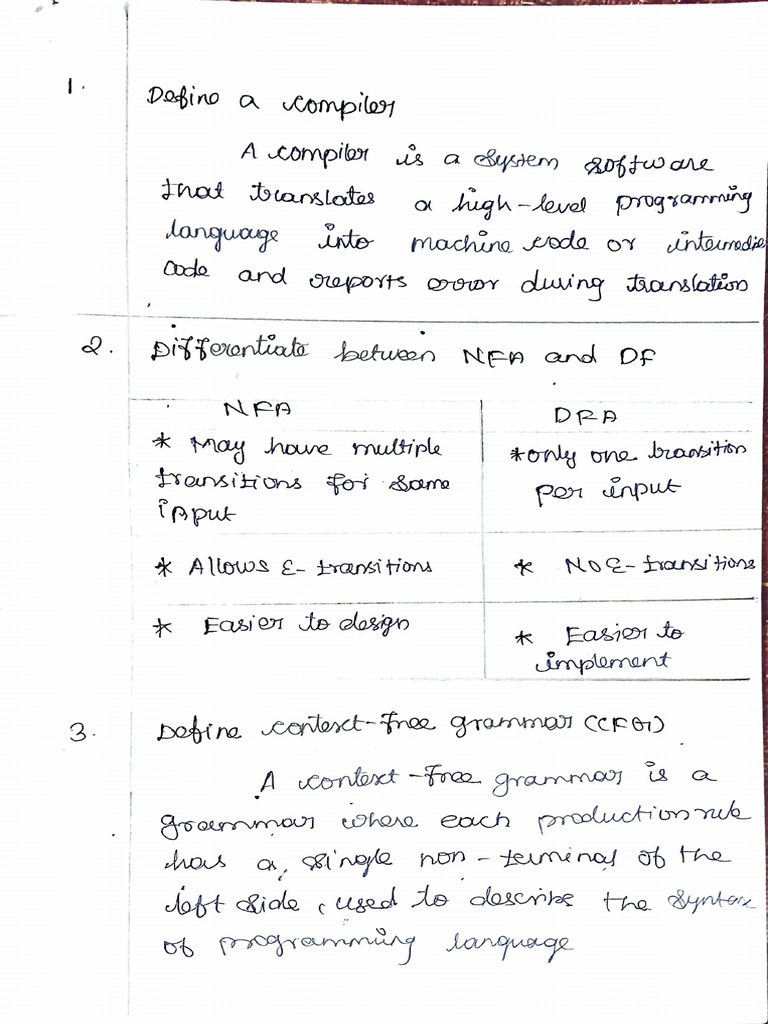 1. Define a compiler
A compiler is a system software
that translates a high-level programming
language into machine code or intermedie
code and reports error during translation
2. Differentiate between NFA and DF
NFA DFA
* May have multiple
transitions for same
input
* only one transition
per input
* Allows ε- transitions * No ε- transitions
* Easier to design * Easier to
implement
3. Define context-free grammar (CFG)
A context-free grammar is a
grammar where each production rule
has a single non-terminal of the
left side, used to describe the syntax
of programming language